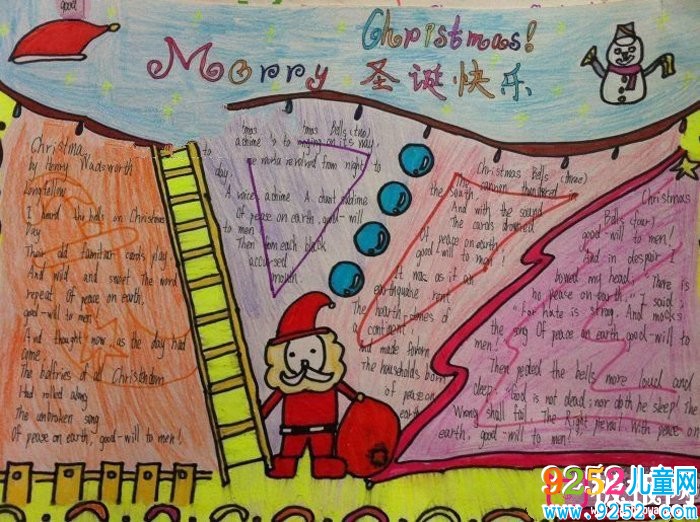 good
Christmas!
Merry 圣诞快乐
Christmas
by Henry Wadsworth
Longfellow
I heard the bells on Christmas
Day
Their old familiar carols play,
And wild and sweet The word
repeat Of peace on earth,
good-will to men!
And thought how, as the day had
come,
The belfries of all Christendom
Had rolled along
The unbroken song
Of peace on earth, good-will to men!
Bells (two)
its way,
The world revolved from night to
day,
A voice, a chime A chant sublime
Of peace on earth, good-will
to men!
Then from each black
accursed
mouth
Christmas Bells (three)
the South,
cannon thundered
And with the sound
The carols drowned
Of peace on earth,
good-will to men!
It was as if an
earthquake rent
The hearth-stones of
a continent,
and made forlorn
The households born
Of peace on
earth
Christmas
Bells (four)
good-will to men!
And in despair I
bowed my head; There is
no peace on earth," I said;
"For hate is strong, And mocks
the song Of peace on earth, good-will to
men!
Then pealed the bells more loud and
deep: God is not dead; nor doth he sleep! The
Wrong shall fail, The Right prevail, With peace on
earth, good-will to men!
9252儿童网
www.9252.com